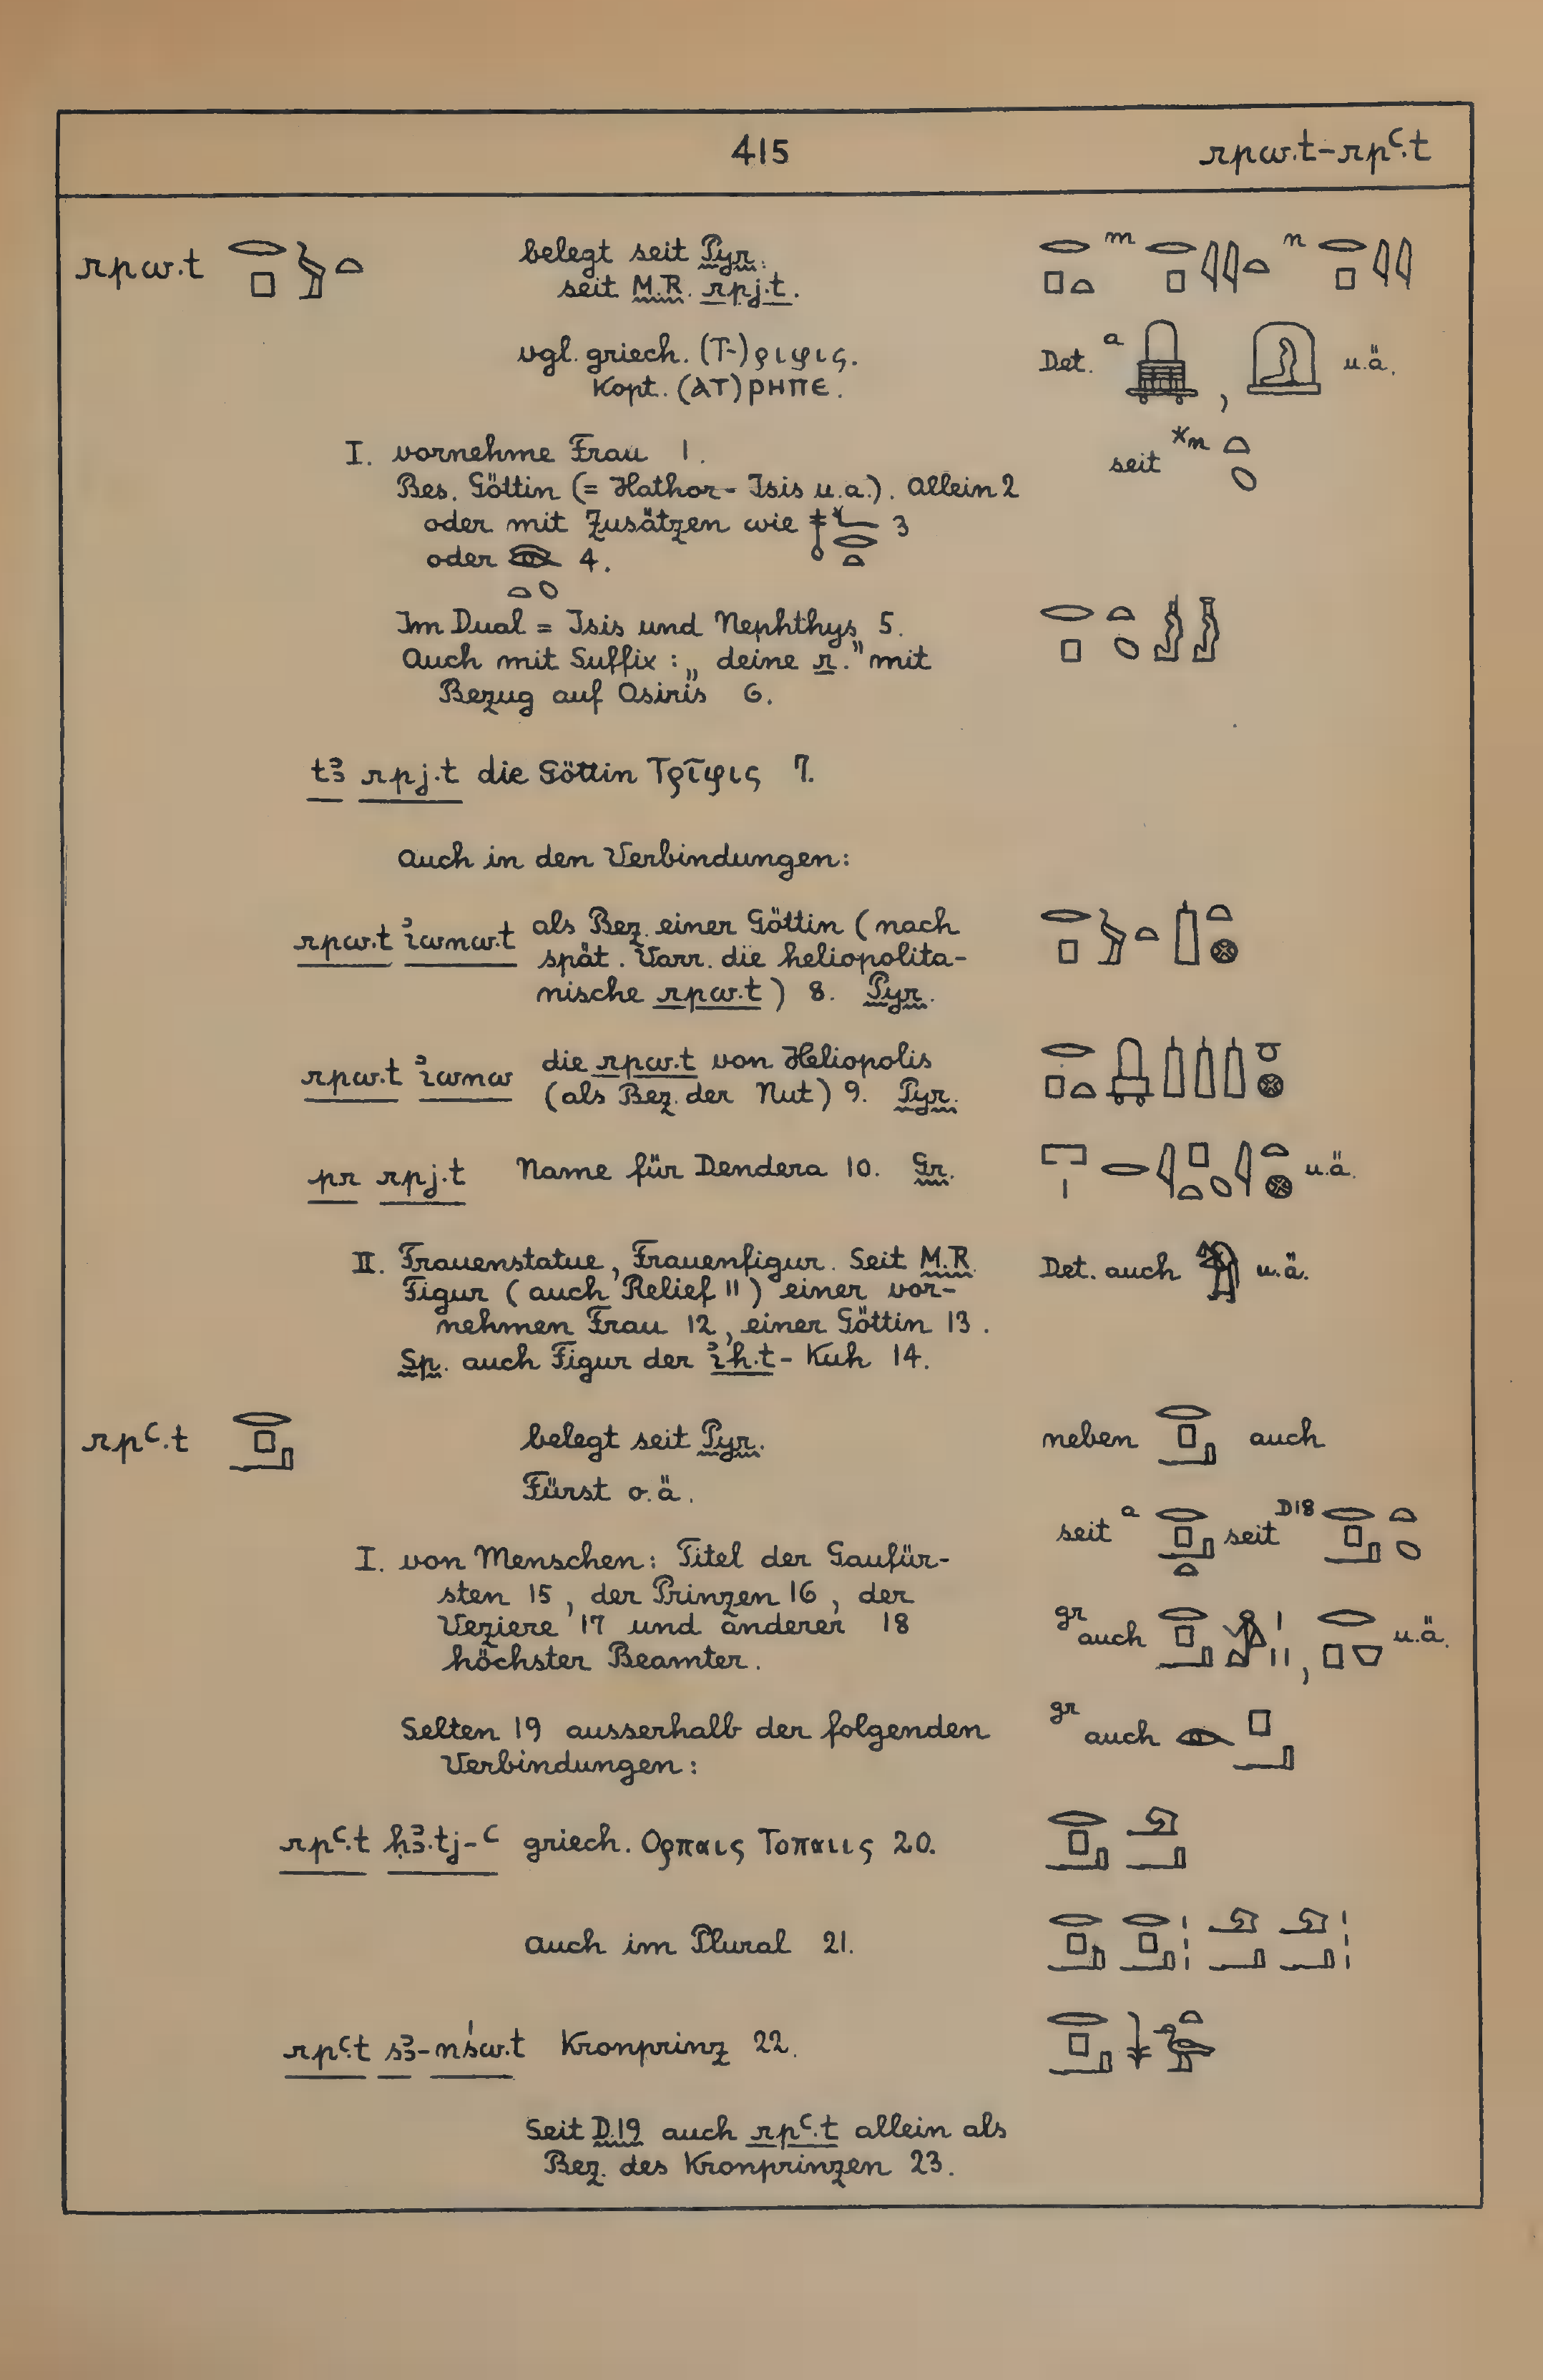 415
rpw.t-rpꜥ.t
rpw.t 𓂋𓊪𓅱𓏏 belegt seit Pyr.
seit M.R. rpj.t.
vgl. griech. (Τ-)ριφις.
Kopt. (ⲁⲧ)ⲣⲏⲡⲉ.
Det. a , u.ä.
I. vornehme Frau 1.
Bes. Göttin (= Hathor-Isis u.a.). Allein 2
oder mit Zusätzen wie 3
oder 4.
seit *n 𓏏𓆇
Im Dual = Isis und Nephthys 5.
Auch mit Suffix: „deine r." mit
Bezug auf Osiris 6.
tꜣ rpj.t die Göttin Τρῖφις 7.
Auch in den Verbindungen:
rpw.t i҆wnw.t als Bez. einer Göttin (nach
spät. Varr. die heliopolita-
nische rpw.t) 8. Pyr.
rpw.t i҆wnw die rpw.t von Heliopolis
(als Bez. der Nut) 9. Pyr.
pr rpj.t Name für Dendera 10. Gr. u.ä.
II. Frauenstatue, Frauenfigur. Seit M.R.
Det. auch u.ä.
Figur (auch Relief 11) einer vor-
nehmen Frau 12, einer Göttin 13.
Sp. auch Figur der i҆h.t-Kuh 14.
rpꜥ.t 𓂋𓊪𓂝 belegt seit Pyr.
neben 𓂋𓊪𓂝 auch
Fürst o.ä.
seit a 𓂋𓊪𓂝𓏏 seit D18 𓂋𓊪𓂝𓏏𓆇
I. von Menschen: Titel der Gaufür-
sten 15, der Prinzen 16, der
Veziere 17 und anderer 18
höchster Beamter.
gr auch , u.ä.
Selten 19 ausserhalb der folgenden
Verbindungen:
gr auch 𓁹𓊪𓂝
rpꜥ.t ḥꜣ.tj-ꜥ griech. Ορπαις Τοπαιις 20. 𓂋𓊪𓂝𓄂𓂝
auch im Plural 21.
rpꜥ.t sꜣ-nśw.t Kronprinz 22. 𓂋𓊪𓂝𓇓𓏏𓅭
Seit D.19 auch rpꜥ.t allein als
Bez. des Kronprinzen 23.